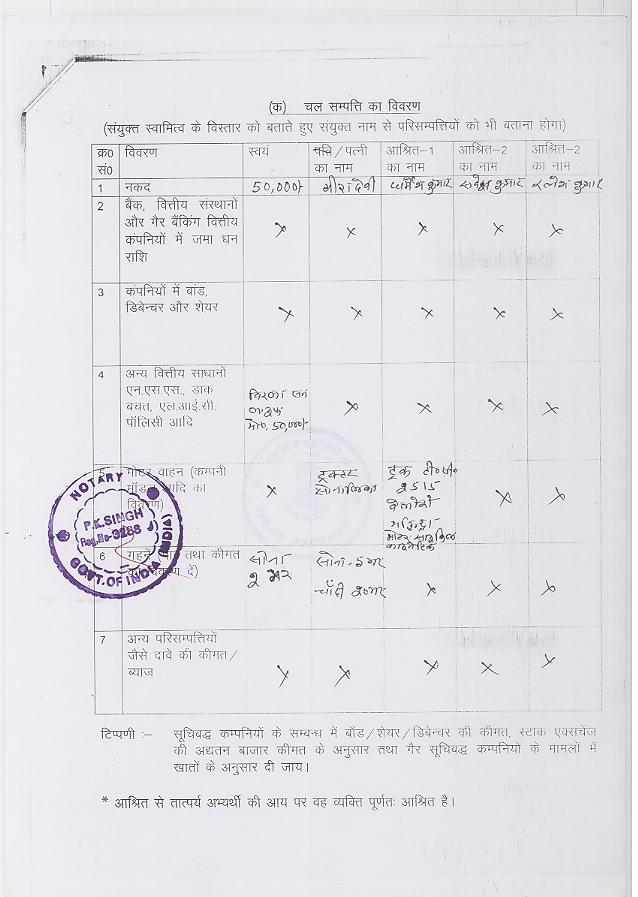 (क) चल सम्पत्ति का विवरण
(संयुक्त स्वामित्व के विस्तार को बताते हुए संयुक्त नाम से परिसम्पत्तियों को भी बताना होगा)
क्र0 विवरण स्वयं पति/पत्नी आश्रित–1 आश्रित–2 आश्रित–2
सं0 का नाम का नाम का नाम का नाम
1 नकद 50,000/- मीरा देवी कुमार कुमार कुमार
2 बैंक, वित्तीय संस्थानों
और गैर बैंकिंग वित्तीय
कंपनियों में जमा धन × × × × ×
राशि
3 कंपनियों में बांड,
डिबेन्चर और शेयर × × × × ×
4 अन्य वित्तीय साधानों
एन.एस.एस., डाक
बचत, एल.आई.सी. × × × ×
पॉलिसी आदि 50,000/-
5 मोटर वाहन (कम्पनी ट्रक
आदि का × सोनालिका 2515 × ×
विवरण)
6 गहने तथा कीमत सोना सोना
दें) 2 भर चाँदी × × ×
7 अन्य परिसम्पत्तियों
जैसे दावे की कीमत/
ब्याज × × × × ×
NOTARY
P.K.SINGH
Reg.No-3288
GOVT.OF INDIA (INDIA)
टिप्पणी :– सूचिबद्ध कम्पनियों के सम्बन्ध में बॉंड/शेयर/डिबेन्चर की कीमत, स्टाक एक्सचेंज
की अद्यतन बाजार कीमत के अनुसार तथा गैर सूचिबद्ध कम्पनियों के मामलों में
खातों के अनुसार दी जाय।
* आश्रित से तात्पर्य अभ्यर्थी की आय पर वह व्यक्ति पूर्णतः आश्रित है।